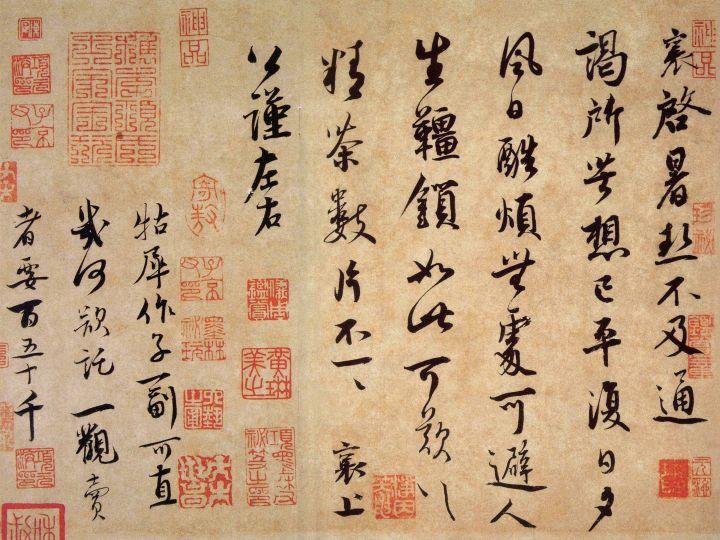 襄啓暑熱不及通
謁所苦想已平復日夕
風日酷煩無處可避人
生韁鎖如此可歎〻
精茶數片不一〻 襄上
公謹左右
牯犀作子一副可直
幾何欲託一觀賣
者要百五十千
神品
黃琳美之
項墨林父祕笈之印